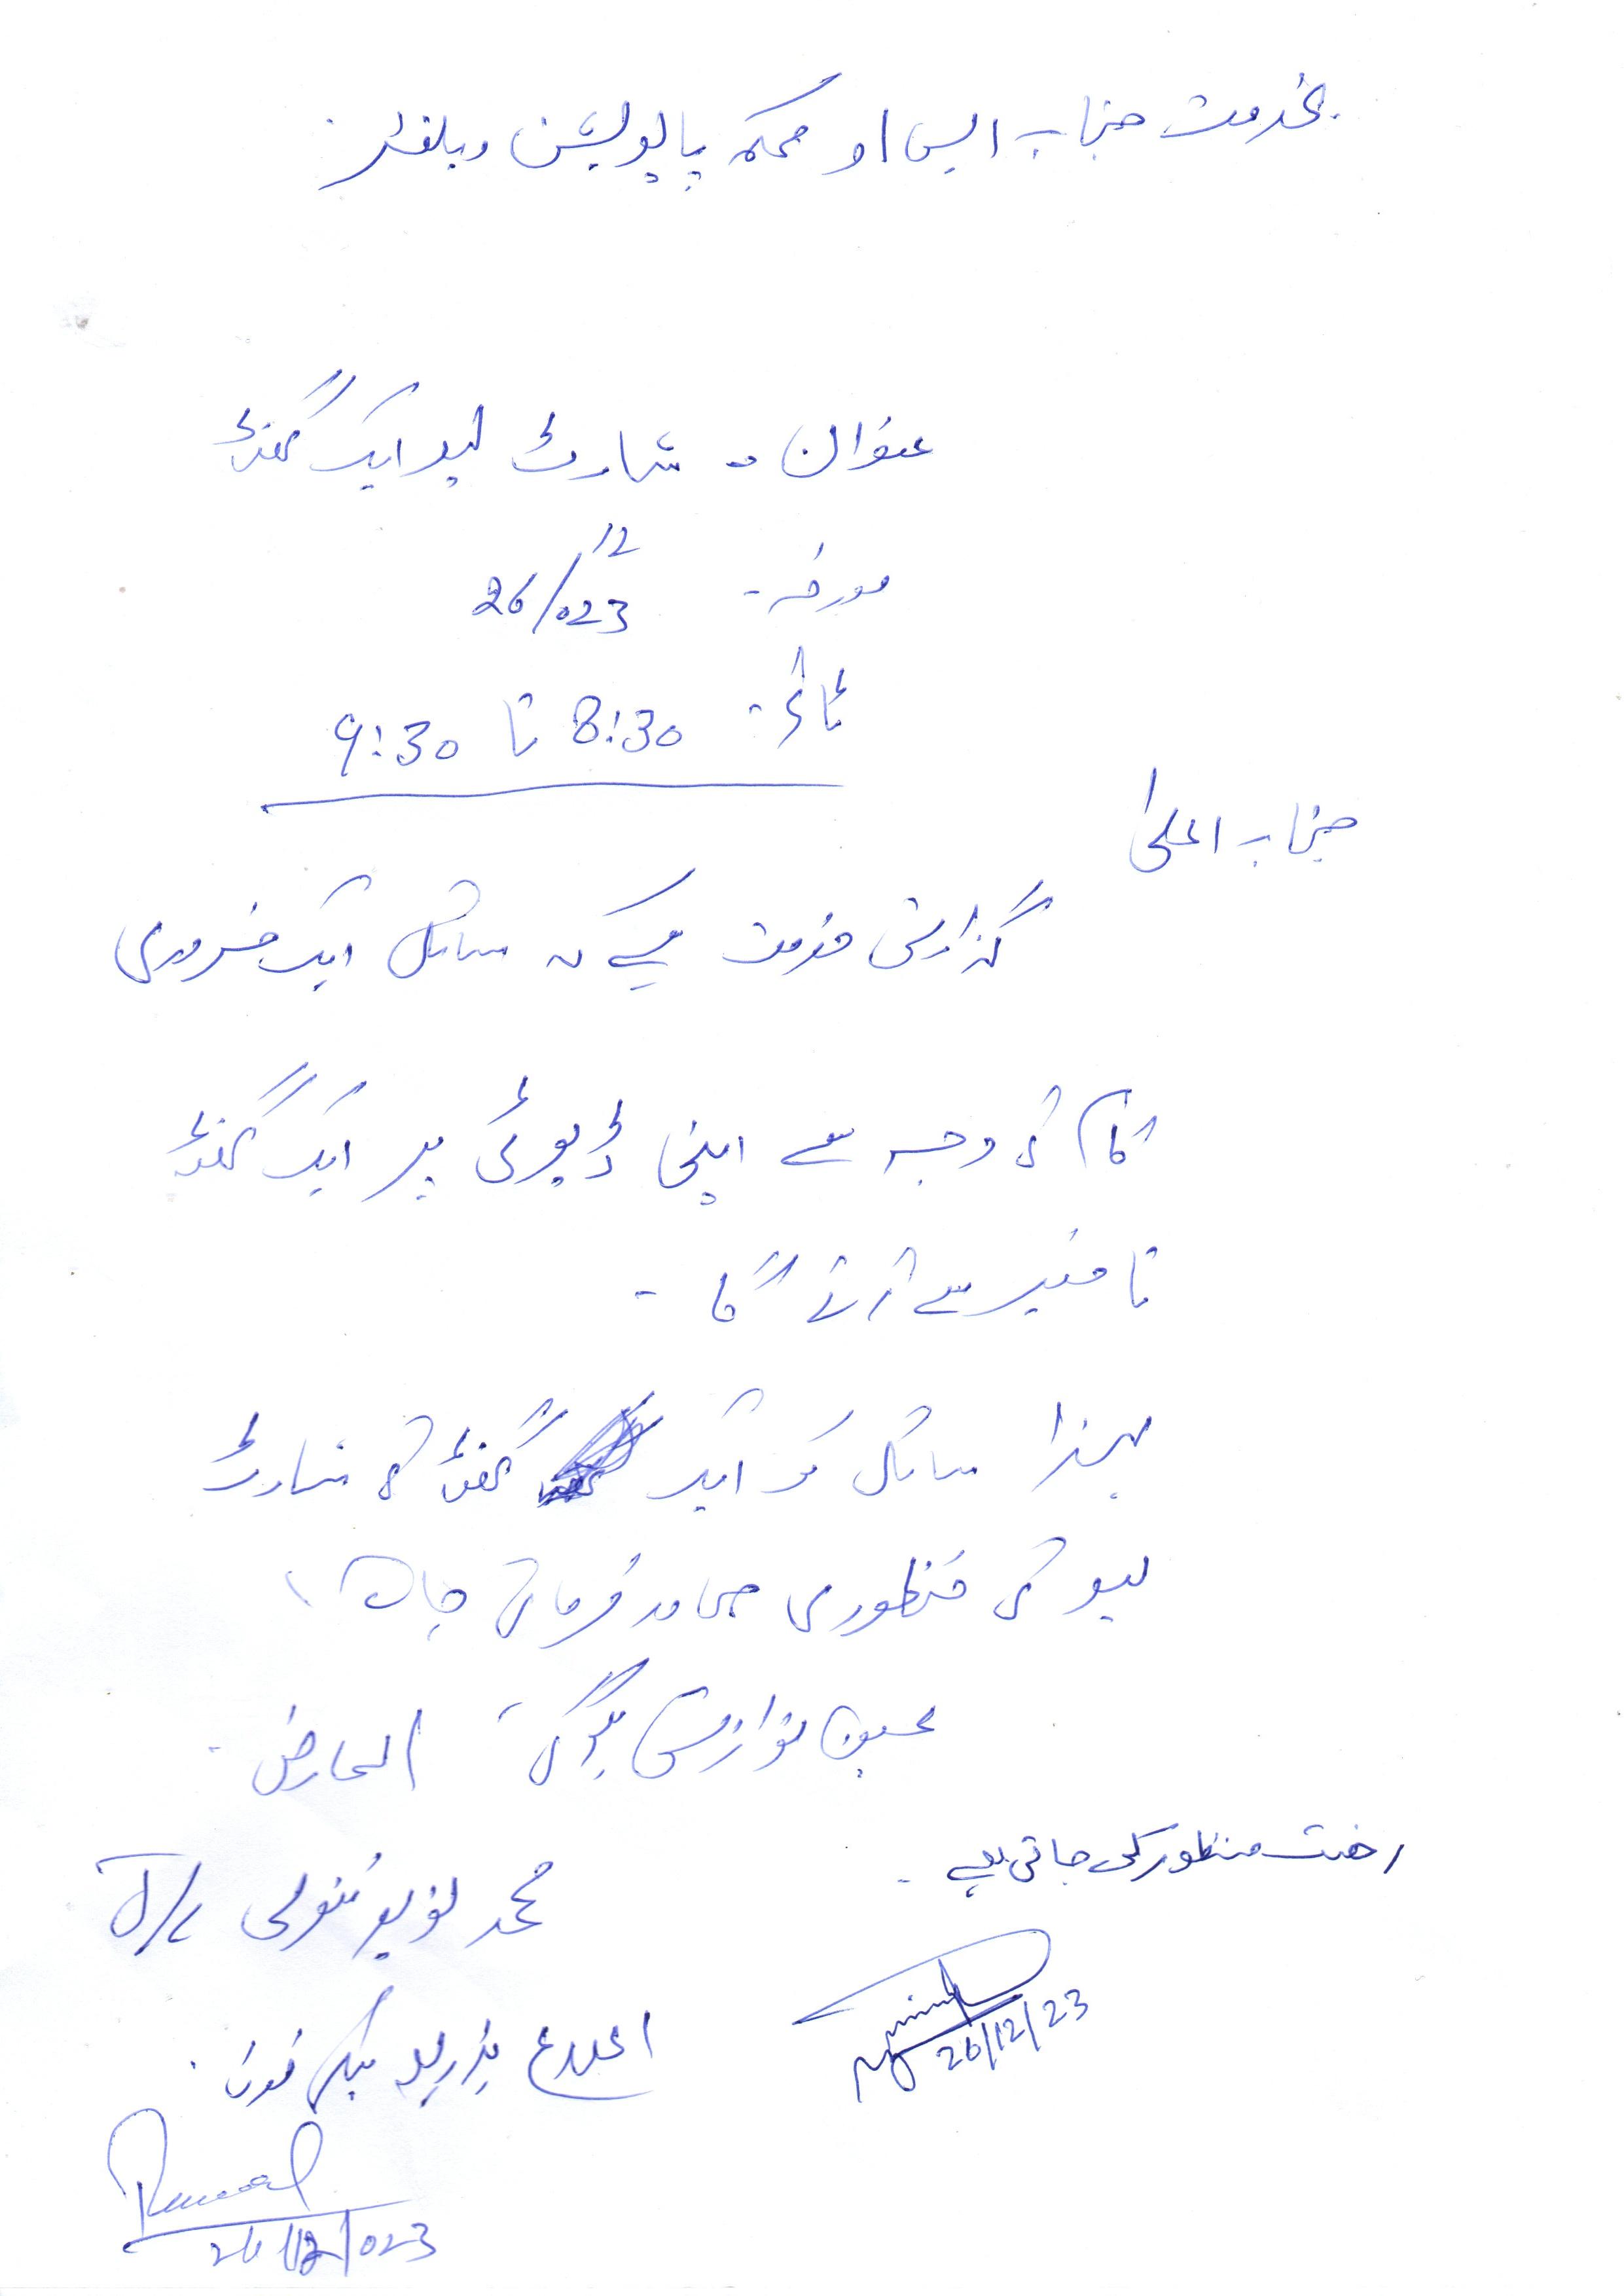 بخدمت جناب ایس او محکمہ پاپولیشن ویلفئر
عنوان - شارٹ لیو ایک گھنٹہ
مورخہ - 26/12/023
ٹائم - 8:30 تا 9:30
جناب اعلیٰ
گذارش خدمت ہے کہ سائل ایک ضروری
کام کی وجہ سے اپنی ڈیوٹی پر ایک گھنٹہ
تاخیر سے آئے گا -
لہذا سائل کو ایک گھنٹہ کی شارٹ
لیو کی منظوری صادر فرمائی جائے
عین نوازش ہوگی العارض -
رخصت منظور کی جاتی ہے -
محمد نوید تنولی
26/12/23
اطلاع بذریعہ ٹیلی فون
26/12/023